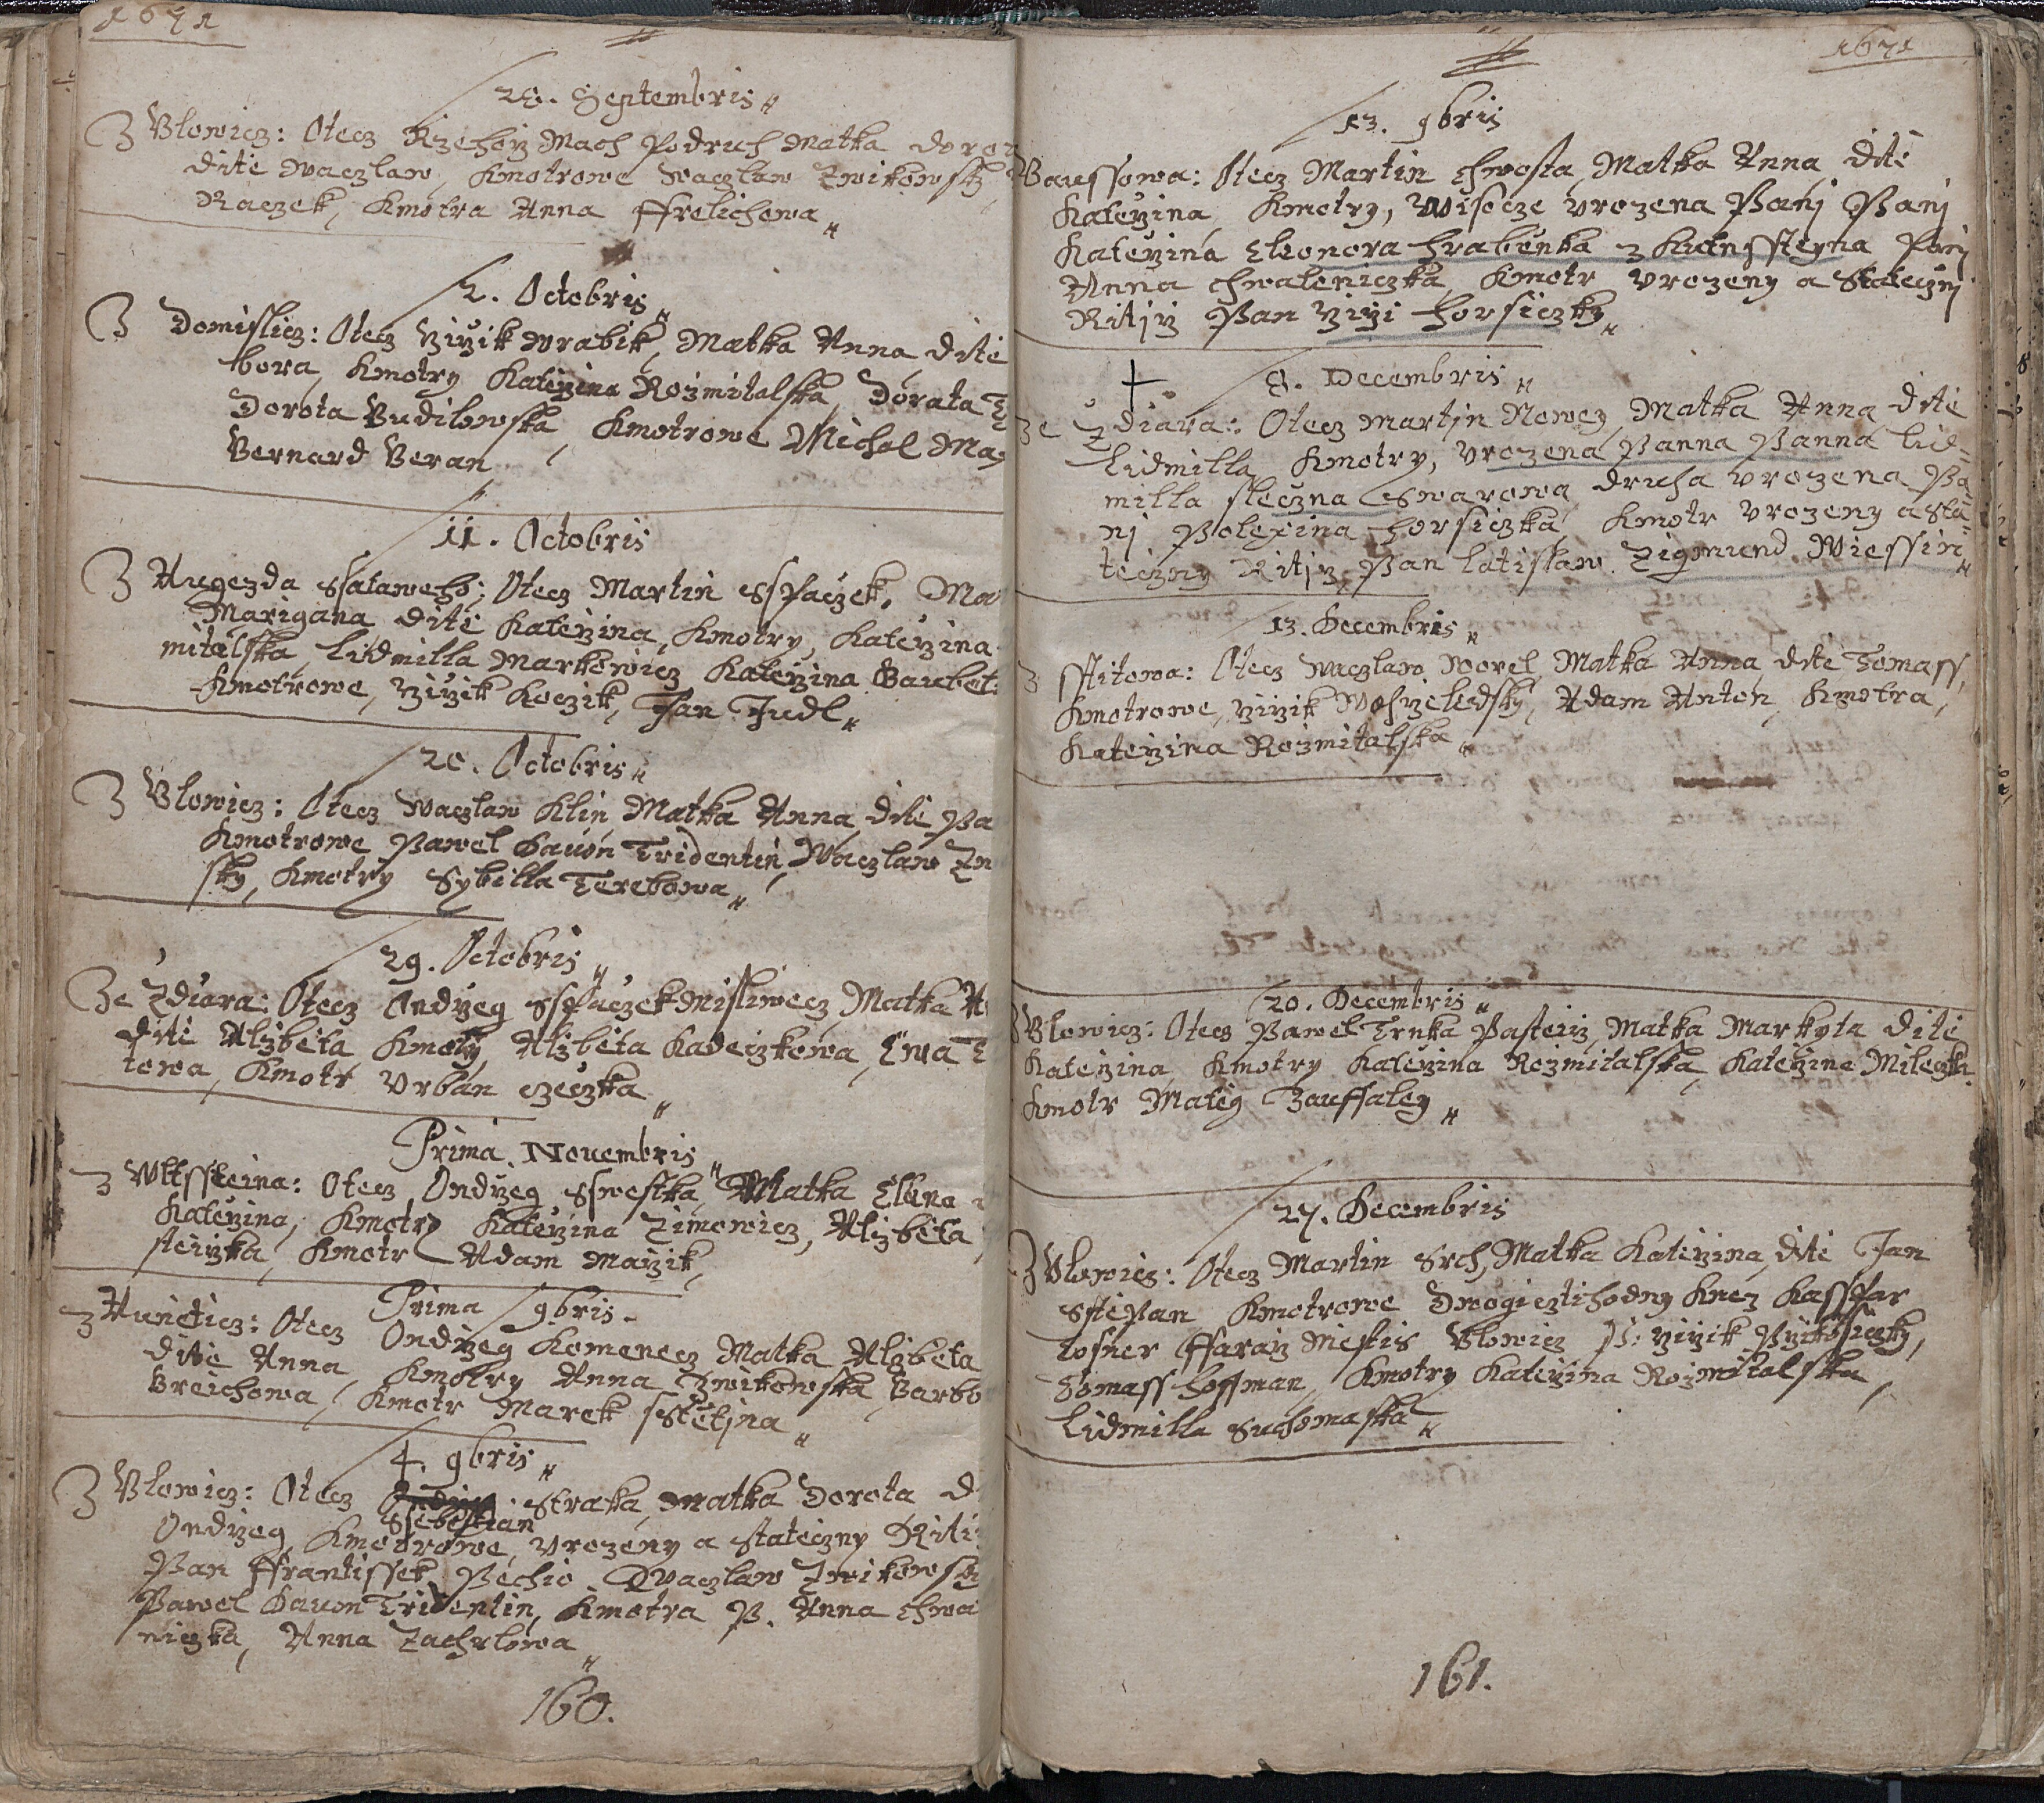 1671
28. Septembris
Z Vlowicz: Otecz Rzehorz Mach Podruh Matka
dite Waczlaw, Kmotrowe Waczlaw Zwikowsky
Raczek, Kmotra Anna Ffrelichowa
2. Octobris
Z Domislicz: Otecz Girzik Wrabik, Matka Anna, dite
bora, Kmotry Katerzina Rozmitalska, Dorata
Dorota Budilowska, Kmotrowe Michal
Bernard Beran
11. Octobris
Z Augezda Ssataweho: Otecz Martin Sspaczek,
Marigana dite Katerzina, Kmotry, Katerzina
mitalska, Lidmilla Markowicz Katerzina
Kmotrowe, Girzik Koczik, Jan Judl
20. Octobris
Z Vlowicz: Otecz Waczlaw Klin Matka Anna, dite Pa
Kmotrowe Pawel Bauon Tridentin, Waczlaw Zw
sky, Kmotry Sybilla Terebowa
29. Octobris
Ze Zdiara: Otecz Ondrzeg Sspaczek Misliwecz, Matka
dite Alzbeta Kmotry Alzbeta Kadeczkowa, Ewa
towa, Kmotr Vrban czeczka
Prima Nouembris
Z Wltssteina: Otecz Ondrzeg Sswestka, Matka Elena
Katerzina, Kmotry Katerzina Zimowicz, Alzbeta
Kmotr Adam Marzik
Prima 9bris
Z Auneticz: Otecz Ondrzeg Komenecz Matka Alzbeta
dite Anna, Kmotry Anna Zwikowska, Barbo
Breichowa, Kmotr Marek sstetina
4. 9bris
Z Vlowicz: Otecz Straka, Matka Dorota
Ssebestian
Ondrzeg, Kmotrowe, Vrozeny a Stateczny
Pan Ffrantissek Pechio Waczlaw Zwikowsky
Pawel Bauon Tridentin, Kmotra P. Anna Chwa
niczka, Anna Zachrlowa
160.
1671
13. 9bris
Baussowa: Otecz Martin Chwosta, Matka Anna, dite
Katerzina, Kmotry, Wisocze Vrozena Pani Pani
Katerzina Eleonora Hrabenka z Guttnssteyna, Pani
Anna Chwaleniczka, Kmotr Vrozeny a Stateczni
Ritirz Pan Girzi Horsiczky
8. Decembris
Ze Zdiara: Otecz Martin Nowey, Matka Anna, dite
Lidmilla, Kmotry, Vrozena Panna Panna Lid-
milla sleczna Swarowa, druha Vrozena Pa-
ni Polexina Horsiczka, Kmotr Vrozeny a Sta-
teczny Ritirz Pan Latislaw Zigmund Wiessin
13. Decembris
z Sstitowa: Otecz Waczlaw Worel, Matka Anna, dite Tomass,
Kmotrowe, Girzik Wohrzeledsky, Adam Anton, Kmotra,
Katerzina Rozmitalska
20. Decembris
Z Vlowicz: Otecz Pawel Trnka Pasteirz, Matka Markyta dite
Katerzina, Kmotry Katerzina Rozmitalska, Katerzina Mileczka
Kmotr Mateg Zauffaley
27. Decembris
Z Vlowicz: Otecz Martin Srch, Matka Katerzina, dite Jan
Sstepan Kmotrowe Dwogicztihodny Knez Kasspar
Losner Ffararz Miestis Vlowicz P. Girzik Przikosiczky,
Tomass Hoffman, Kmotry Katerzina Rozmitalska,
Lidmilla Suchomaska
161.